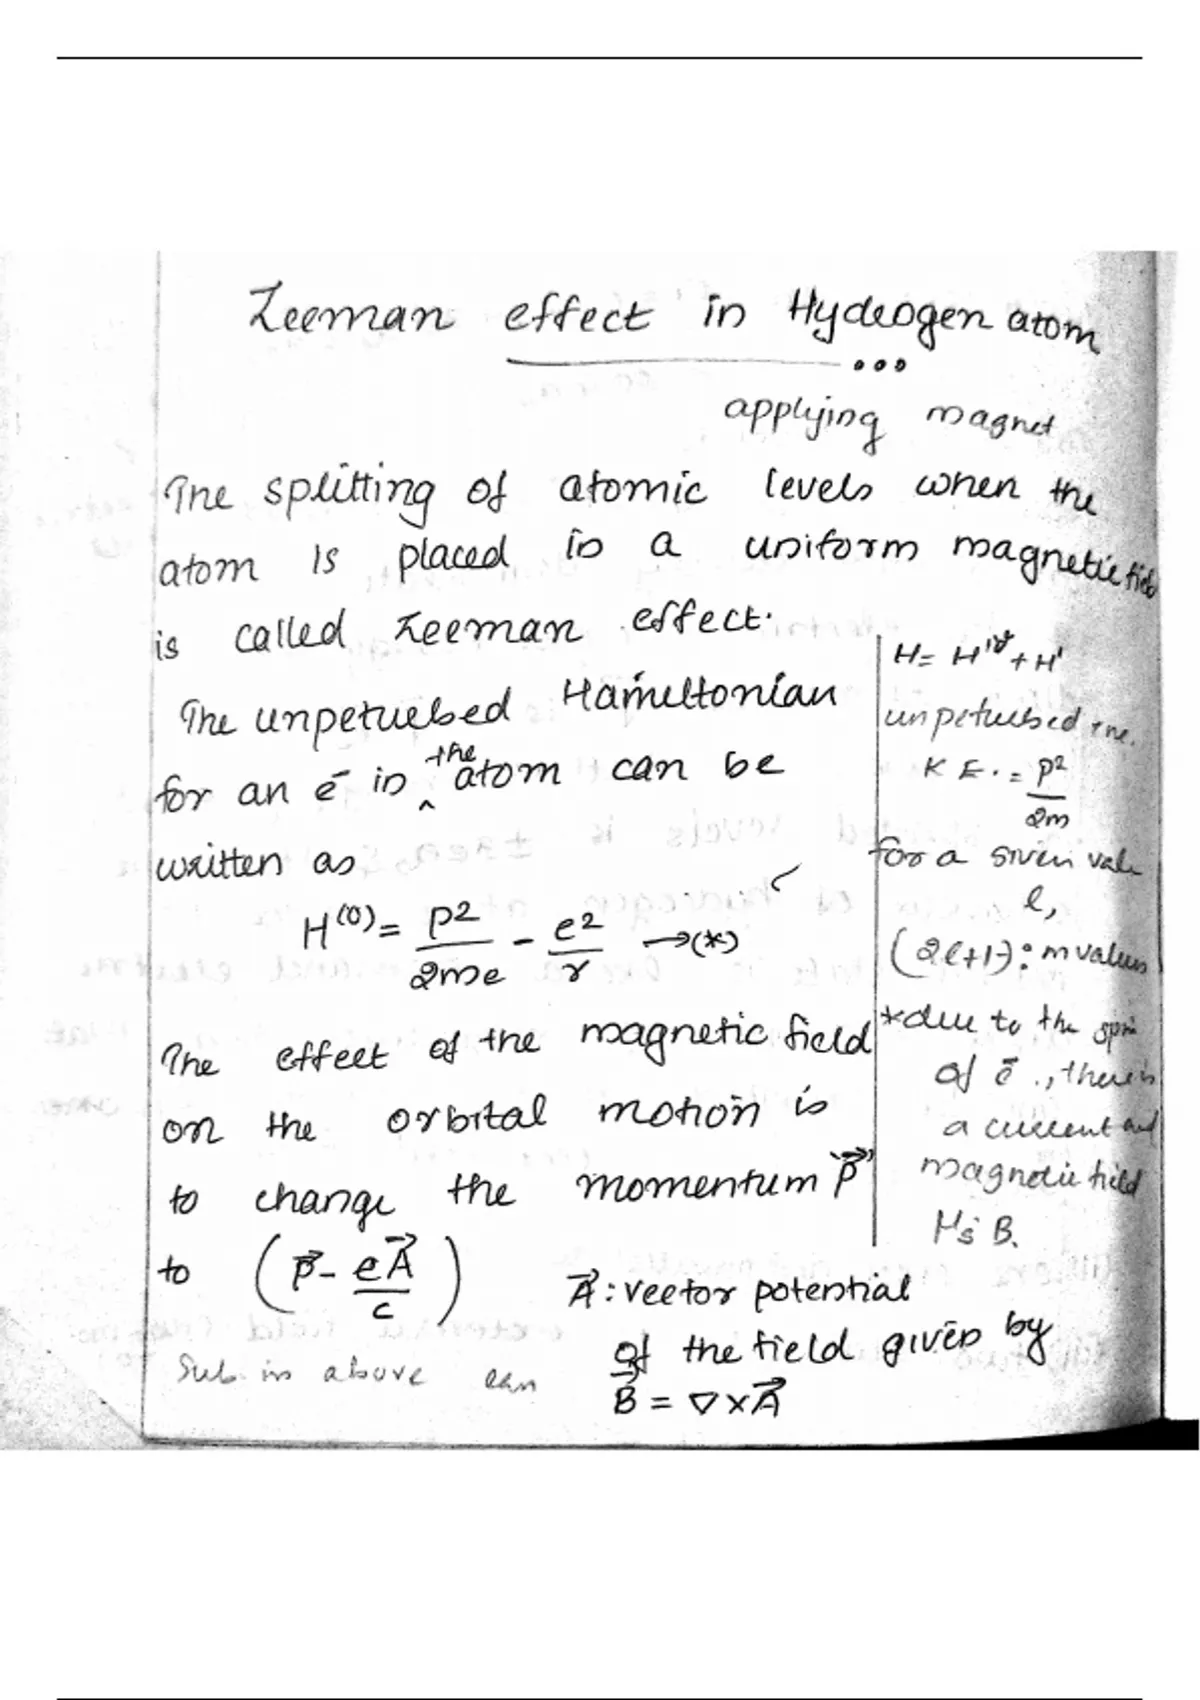 Zeeman effect in Hydrogen atom
applying magnet
The splitting of atomic levels when the
atom is placed in a uniform magnetic field
is called Zeeman effect.
The unpeturbed Hamiltonian
for an e⁻ in the atom can be
written as
H⁽⁰⁾ = P²/2me - e²/r →(*)
The effect of the magnetic field
on the orbital motion is
to change the momentum "P⃗"
to (P⃗ - eA⃗/c)
Sub. in above eqn
A⃗ : vector potential
of the field given by
B⃗ = ∇ × A⃗
H = H⁽⁰⁾ + H'
unpeturbed
K E. = P²/2m
for a given
l,
(2l+1): m values
*due to the spin
of e⁻., there is
a current and
magnetic field
μs B.